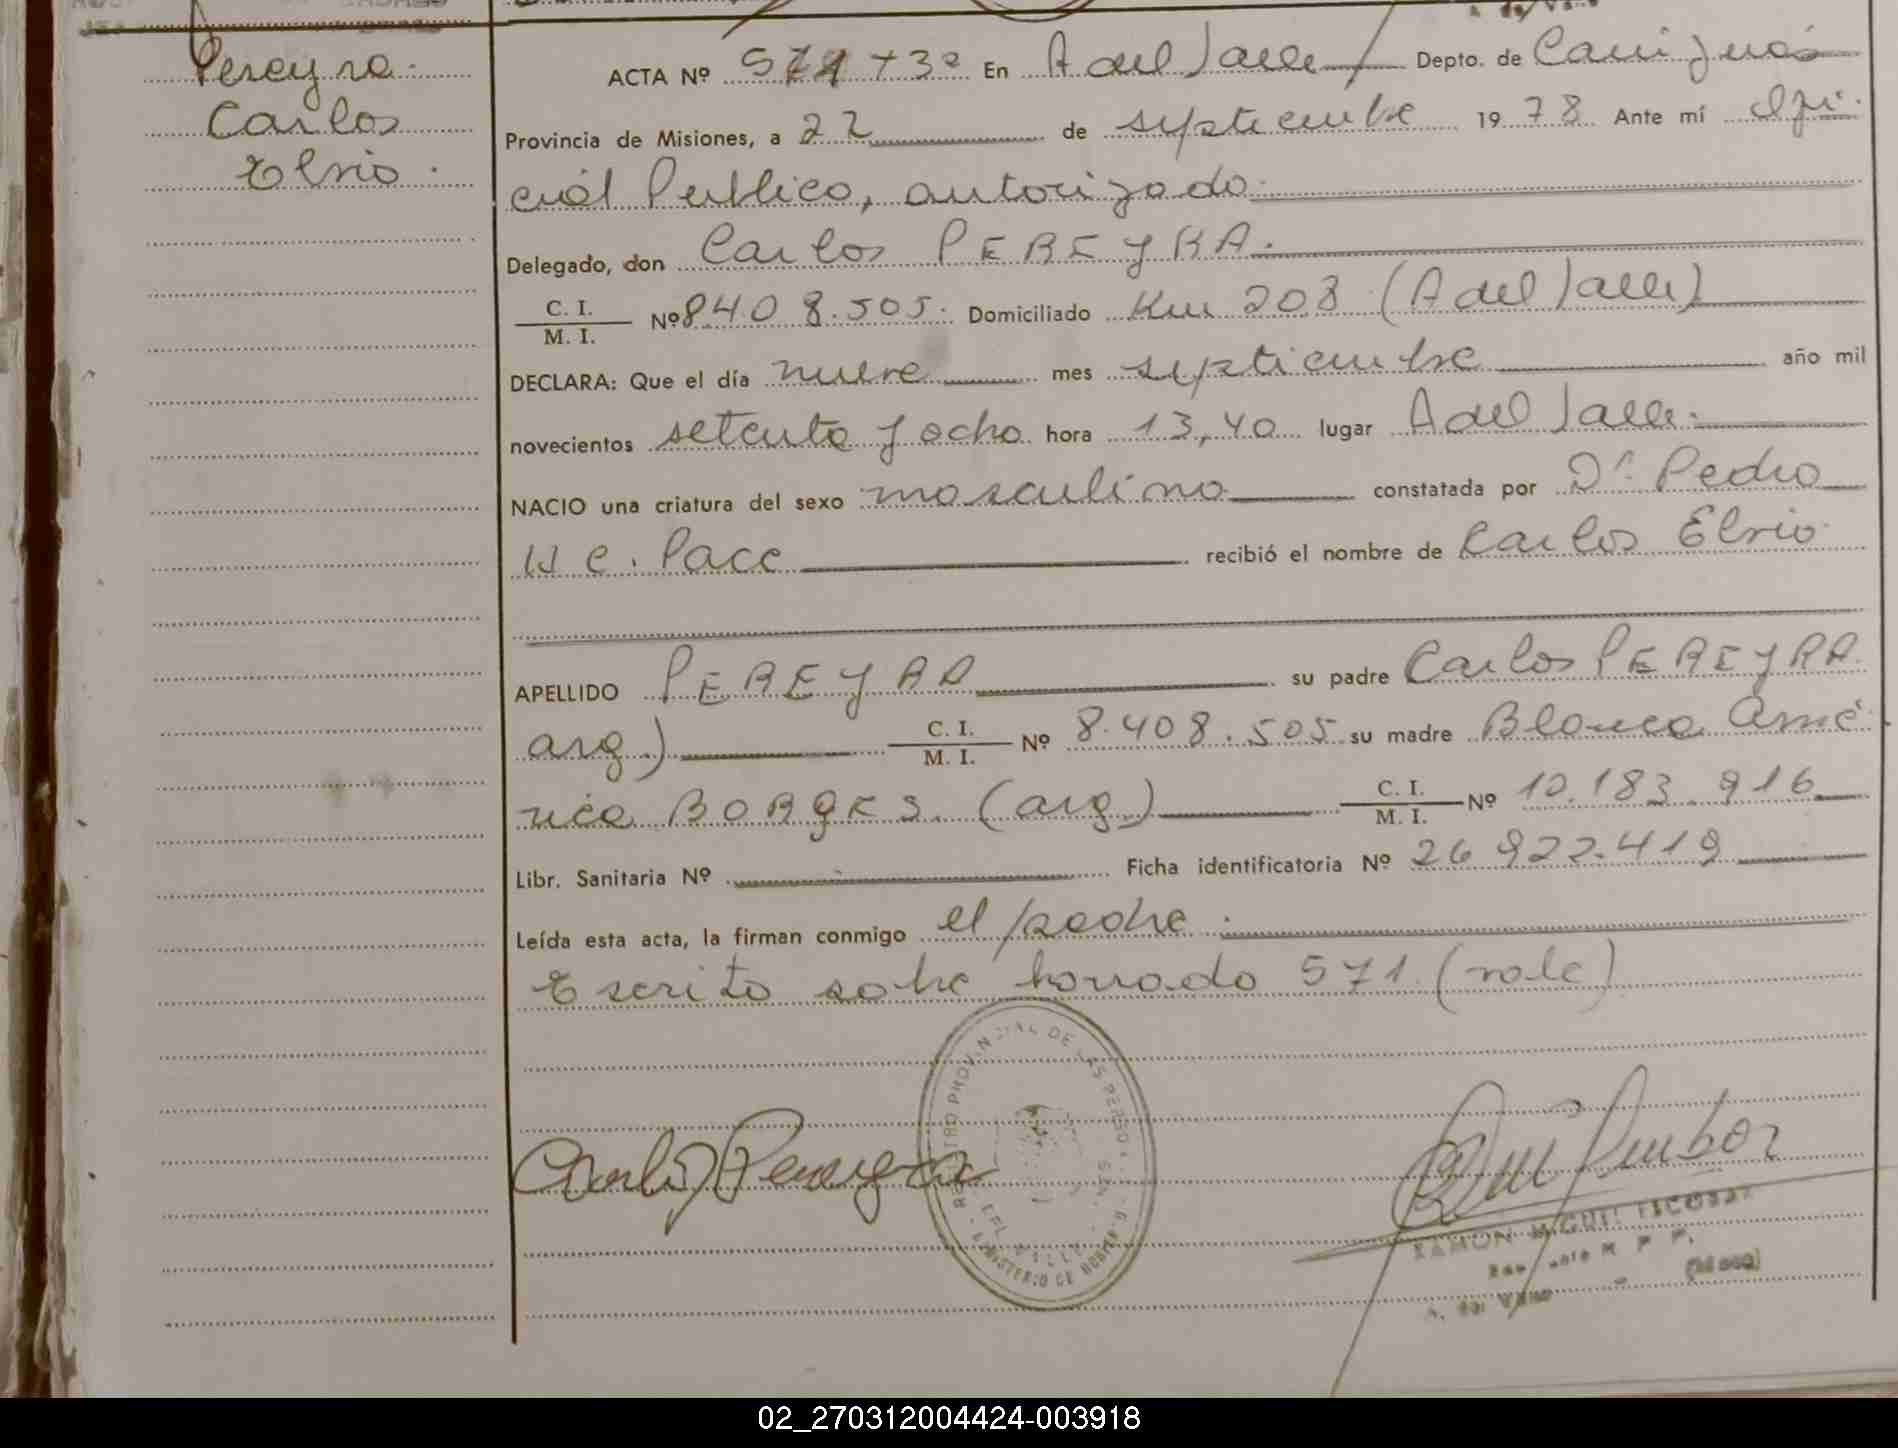 Pereyra
Carlos
Elvio.
ACTA Nº 571 Tº 3º En A del Valle Depto. de Cainguás
Provincia de Misiones, a 22 de septiembre 1978. Ante mí Ofi-
cial Publico, autorizado.
Delegado, don Carlos PEREYRA.
C. I.
M. I.
Nº 8.408.505. Domiciliado Km 208 (A del Valle)
DECLARA: Que el día nueve mes septiembre año mil
novecientos setenta y ocho hora 13,40 lugar A del Valle.
NACIO una criatura del sexo masculino constatada por Dr. Pedro
W C. Pace recibió el nombre de Carlos Elvio
APELLIDO PEREYRA su padre Carlos PEREYRA
arg.) C. I.
M. I. Nº 8.408.505 su madre Blanca Amé
rica BORGES. (arg.) C. I.
M. I. Nº 10.183.916
Libr. Sanitaria Nº Ficha identificatoria Nº 26.922.419
Leída esta acta, la firman conmigo el padre.
Escrito sobre borrado 571. (vale)
Carlos Pereyra
REGISTRO PROVINCIAL DE LAS PERSONAS
MINISTERIO DE GOBIERNO
DEL VALLE
RAMON MIGUEL ESCOBAR
A. del Valle (Mnes)
02_270312004424-003918